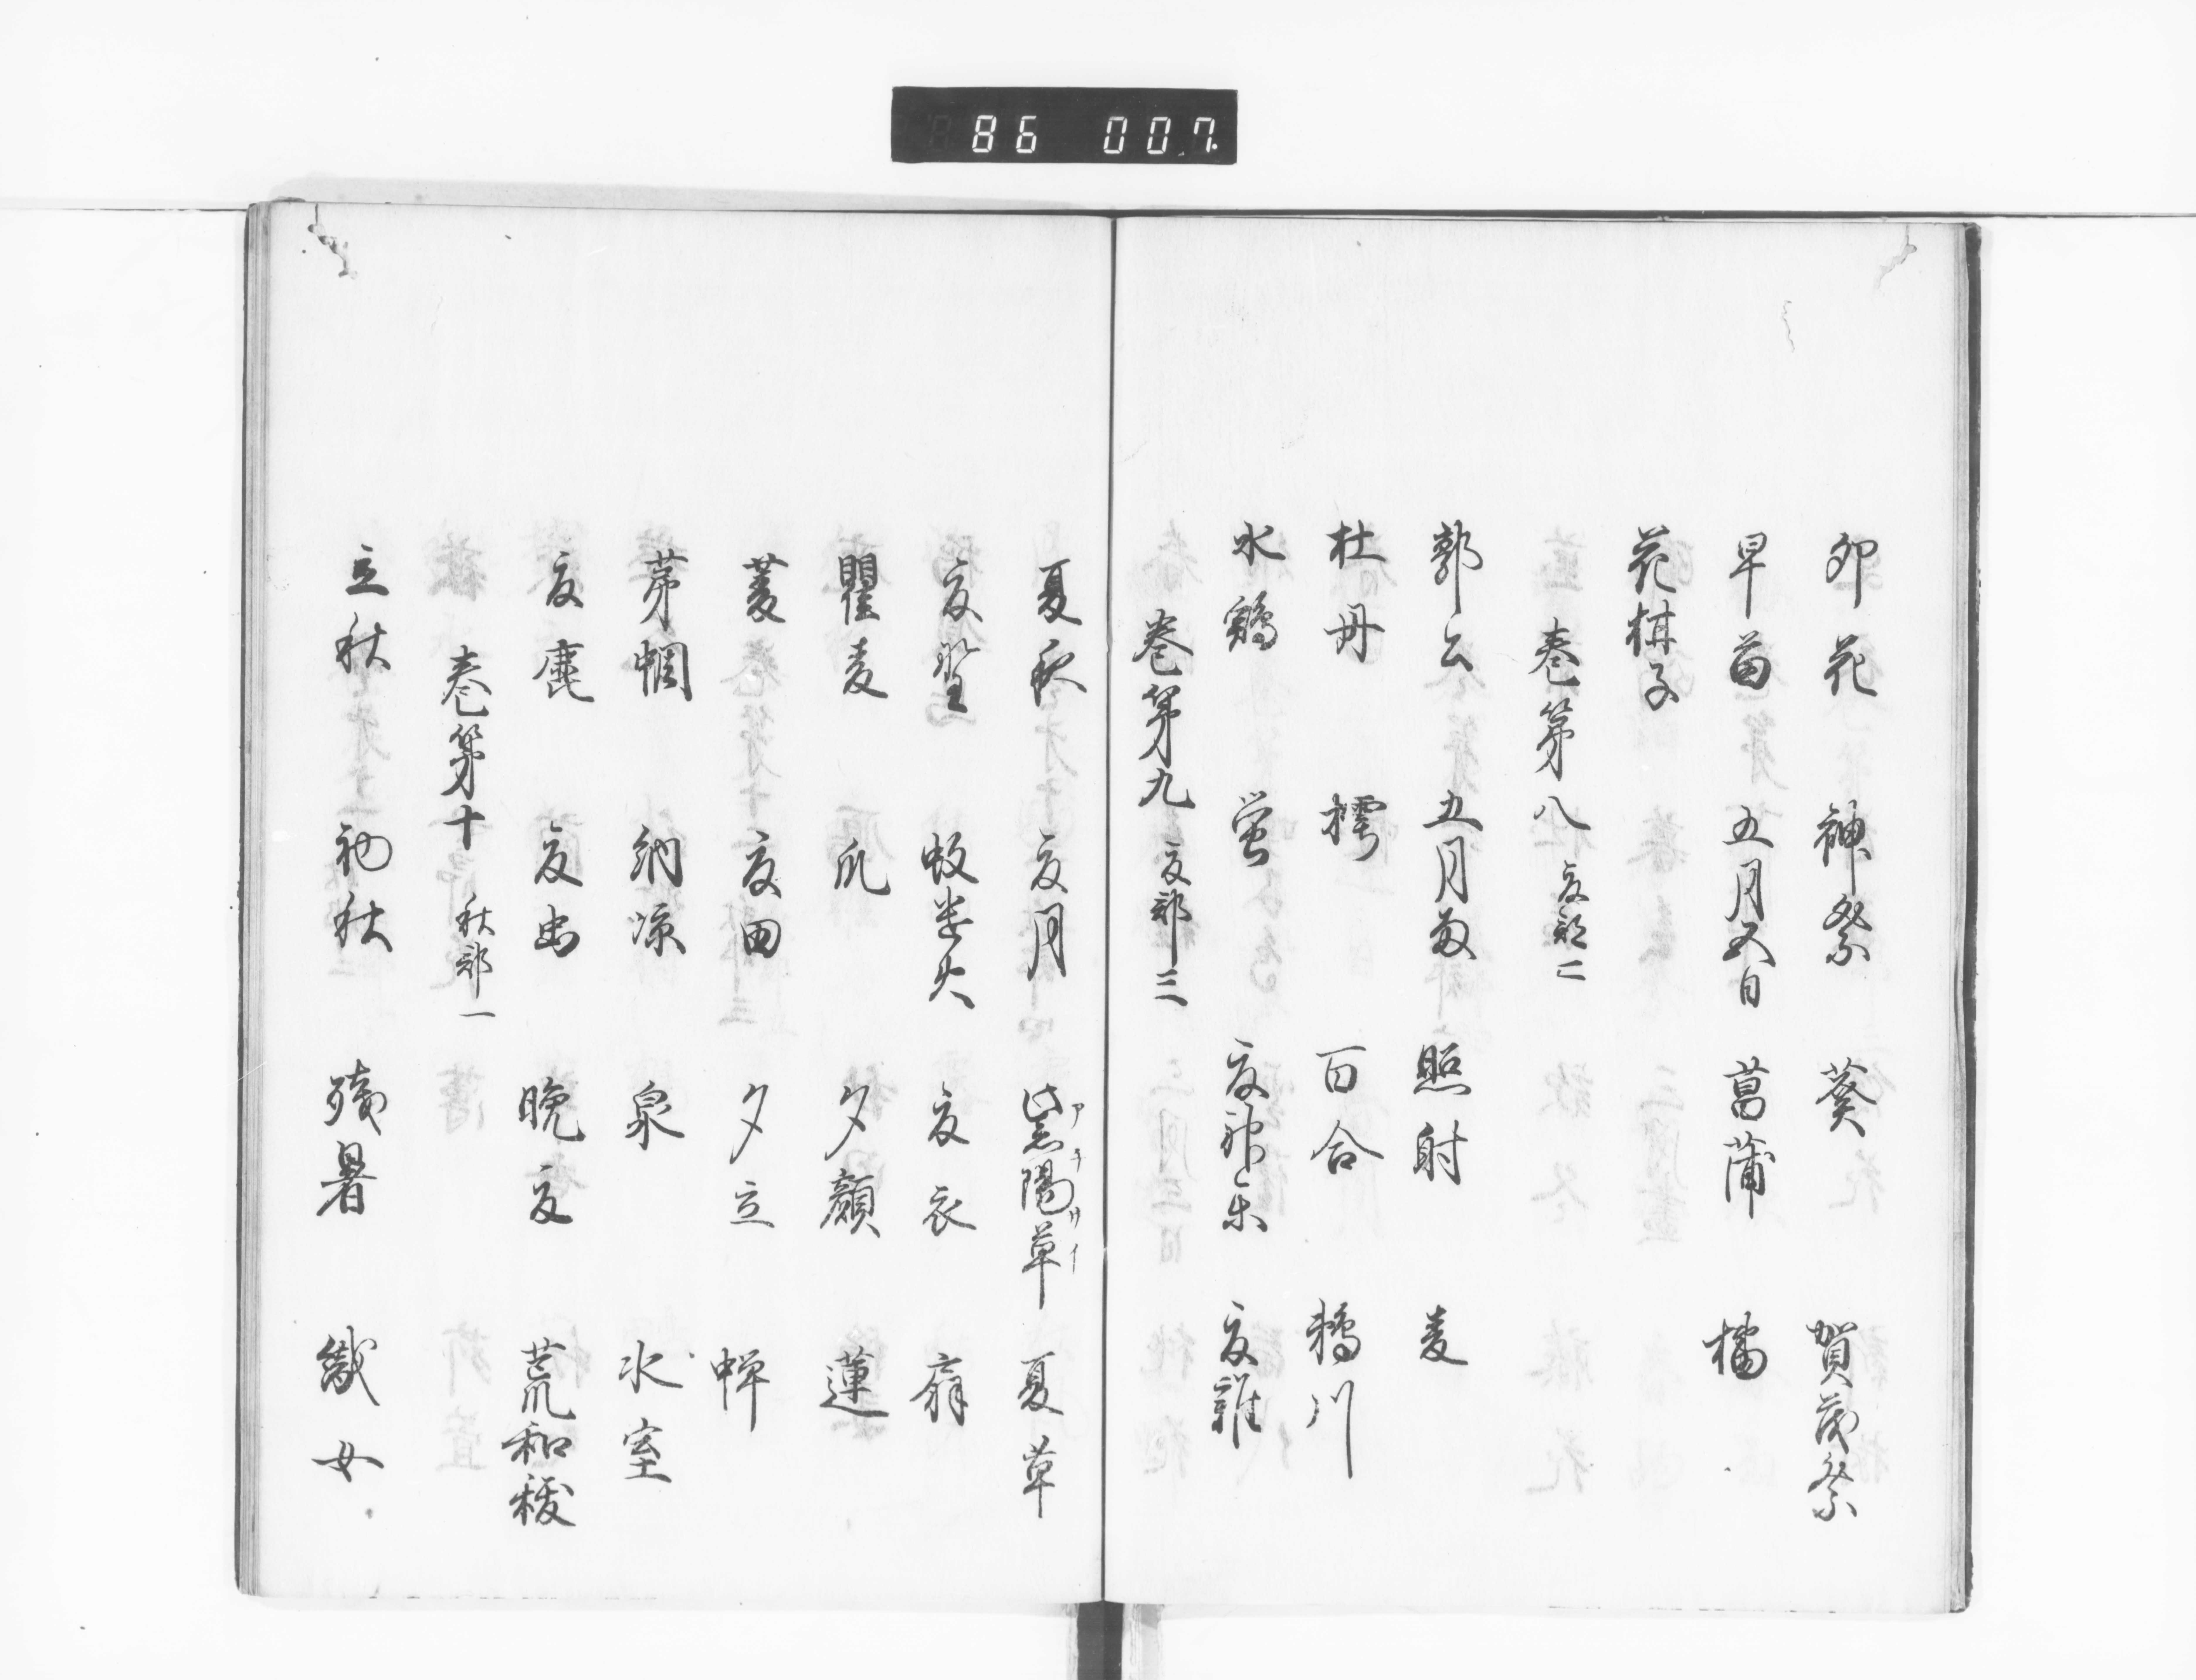 86 007.
卯花 神祭 葵 賀茂祭
早苗 五月五日 菖蒲 橘
花柑子
巻第八 夏部二
郭公 五月雨 照射 麦
牡丹 樗 百合 鵜川
水鶏 蛍 夏神楽 夏雑
巻第九 夏部三
夏夜 夏月 紫陽草 夏草
アチサイ
夏望 蚊遣火 夏衣 扇
瞿麦 瓜 夕顔 蓮
菱 夏田 夕立 蝉
茅 納涼 泉 氷室
夏鹿 夏虫 晩夏 荒和祓
巻第十 秋部一
立秋 初秋 残暑 織女